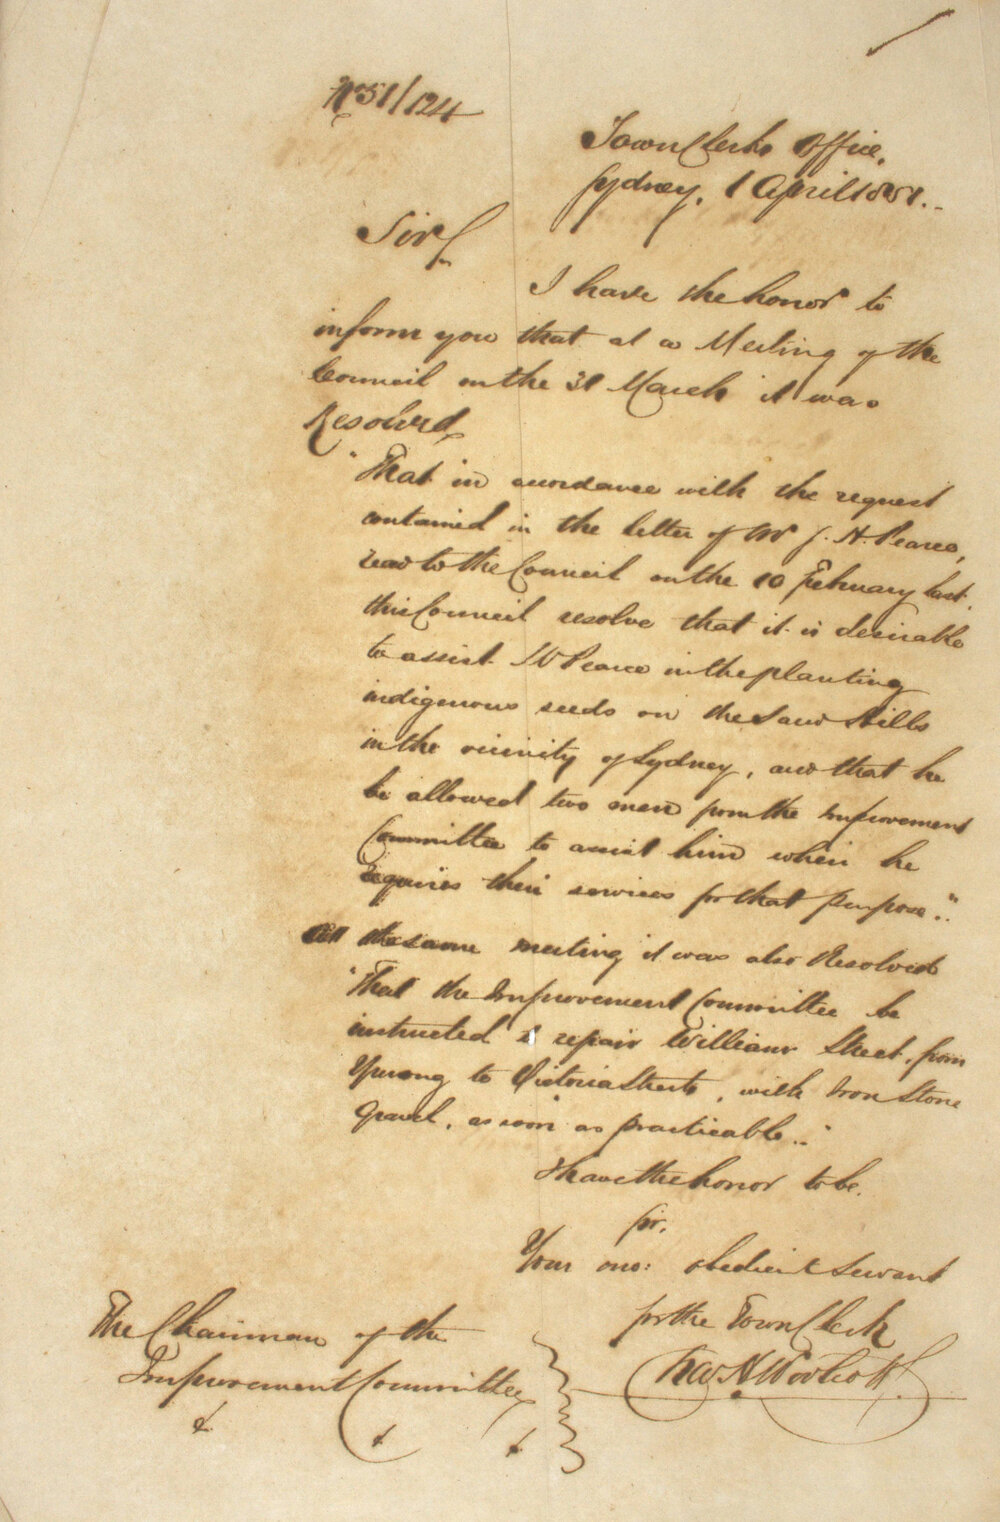 No 51/124
Town Clerks Office,
Sydney, 1 April 1851.
Sir,
I have the honor to
inform you that at a Meeting of the
Council on the 31 March it was
Resolved,
"That in accordance with the request
contained in the letter of Mr J. H. Pearce,
read to the Council on the 10 February last,
this Council resolve that it is desirable
to assist Mr Pearce in the planting
indigenous seeds on the Sand Hills
in the vicinity of Sydney, and that he
be allowed two men from the Improvement
Committee to assist him when he
requires their services for that purpose."
At the same meeting it was also Resolved
"That the Improvement Committee be
instructed to repair William Street, from
Yurong to Victoria Streets, with Iron Stone
Gravel, as soon as practicable."
I have the honor to be,
Sir,
Your mo: obedient Servant
for the Town Clerk
Chas H Woolcott
The Chairman of the
Improvement Committee
& & &